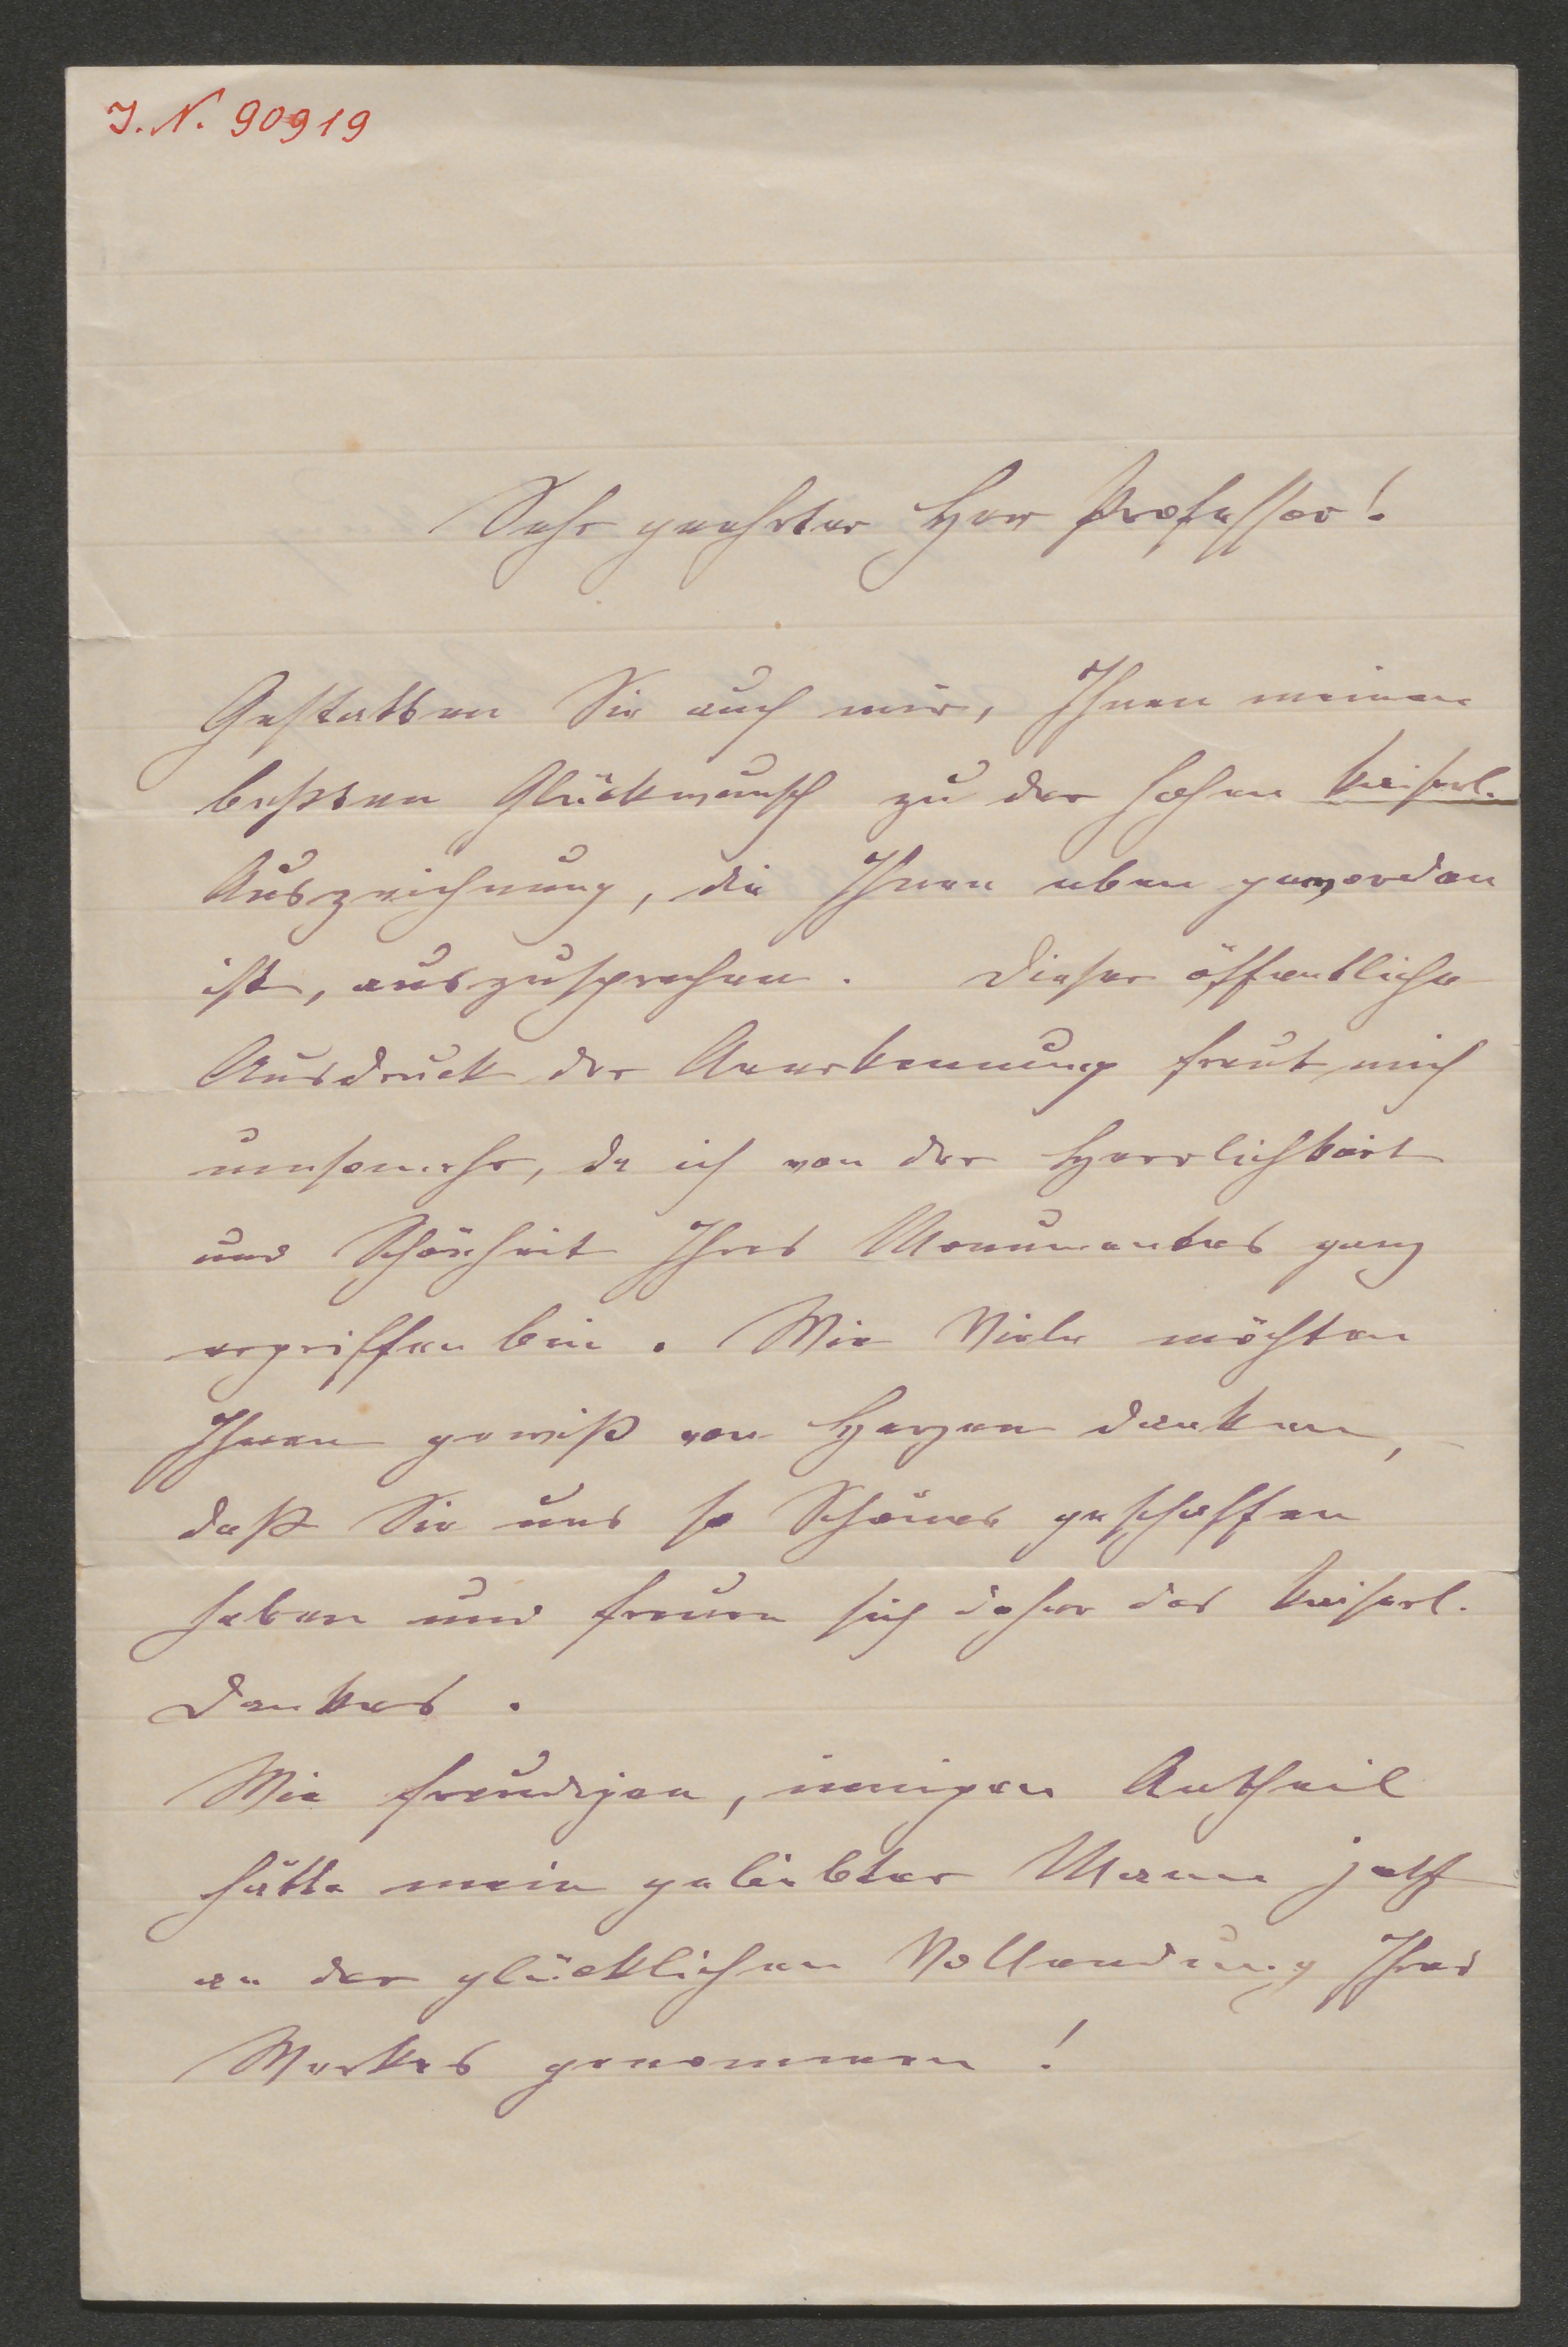 I. N. 90919
Sehr geehrter Herr Professor!
Gestatten Sie auch mir, Ihnen meinen
besten Glückwunsch zu der hohen kaiserl.
Auszeichnung, die Ihnen eben geworden
ist, auszusprechen. Dieser öffentliche
Ausdruck der Anerkennung freut mich
umsomehr, da ich von der Herrlichkeit
und Schönheit Ihres Monumentes ganz
ergriffen bin. Wie Viele möchten
Ihnen gewiß von Herzen danken,
daß Sie uns so Schönes geschaffen
haben und freuen sich daher des kaiserl.
Dankes.
Wie freudigen, innigen Antheil
hätte mein geliebter Mann jetzt
an der glücklichen Vollendung Ihres
Werkes genommen!